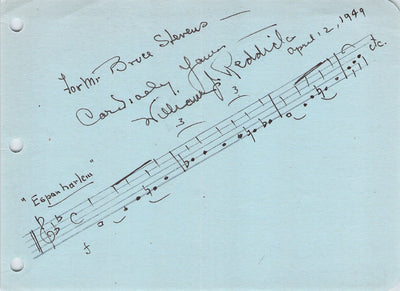 for Mr. Bruce Stevens —
Cordially Yours
William J. Reddick
April 12, 1949
3 3
etc.
"Espanharlem"
f